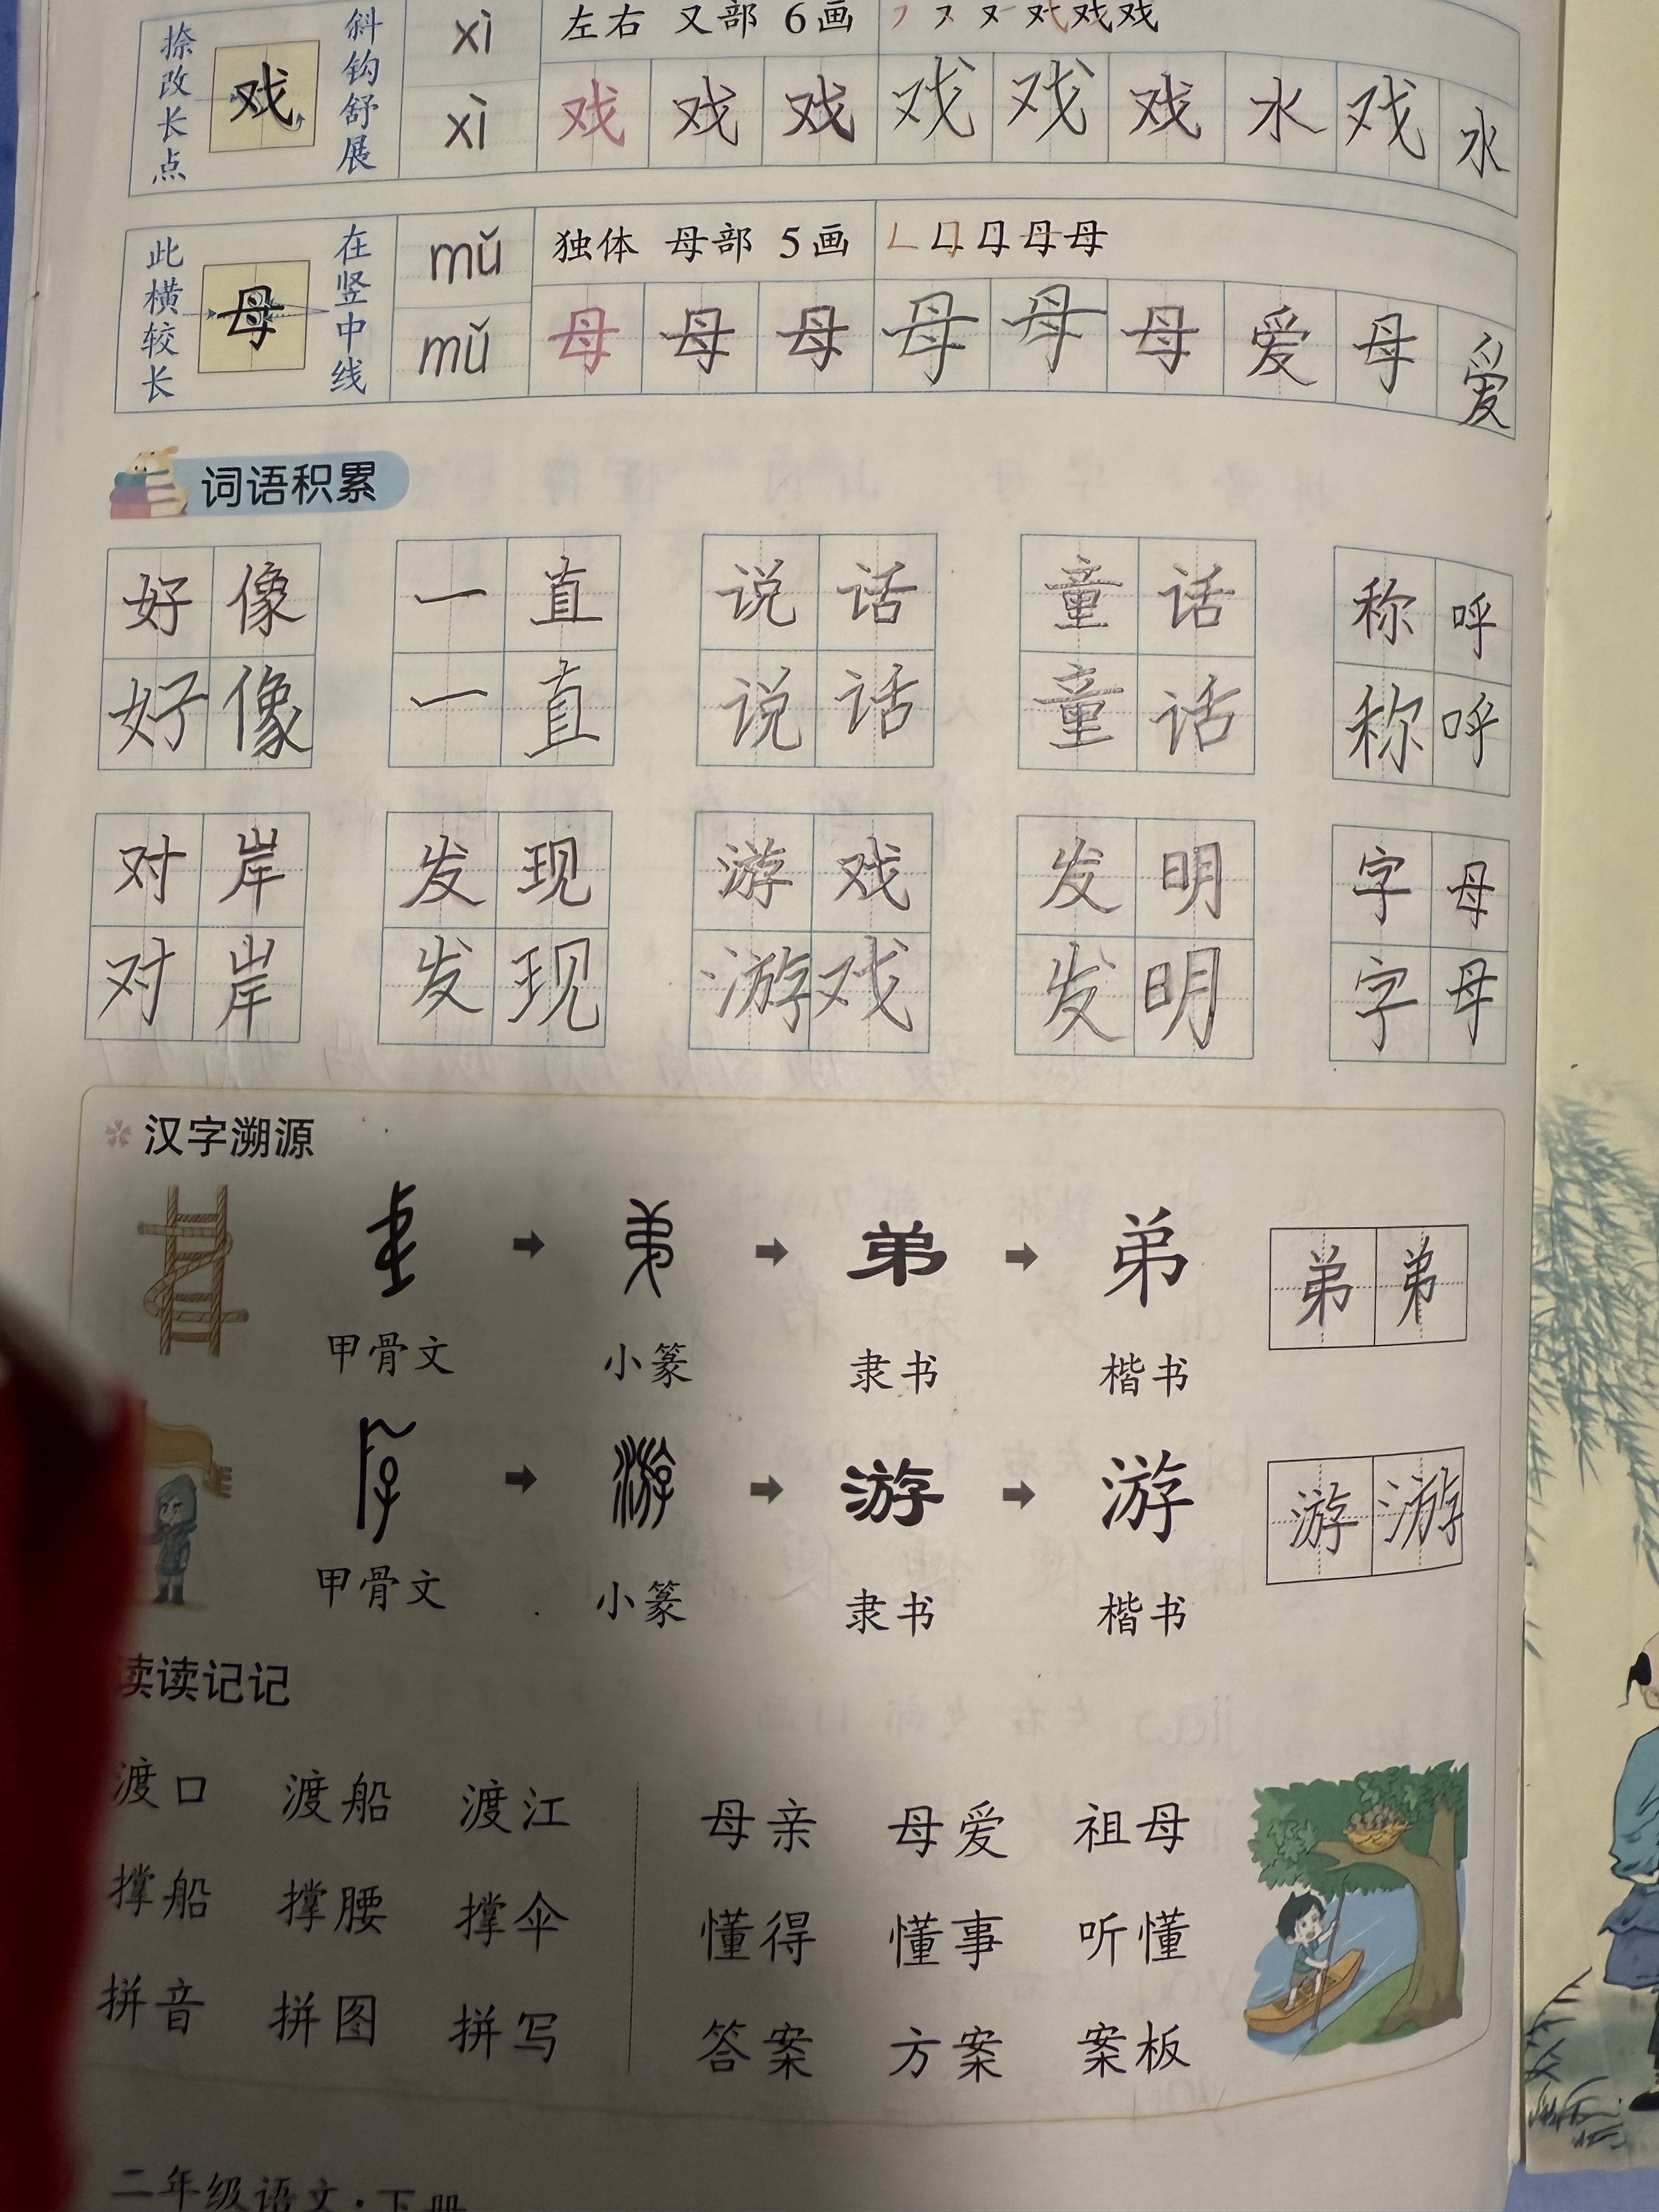 捺改长点 戏 斜钩舒展 xì 左右 又部 6画
xì 戏 戏 戏 戏 戏 戏 水 戏 水
此横较长 母 在竖中线 mǔ 独体 母部 5画
mǔ 母 母 母 母 母 母 爱 母 爱
词语积累
好像 一直 说话 童话 称呼
好像 一直 说话 童话 称呼
对岸 发现 游戏 发明 字母
对岸 发现 游戏 发明 字母
汉字溯源
弟 弟 弟 弟 弟
甲骨文 小篆 隶书 楷书
游 游 游 游 游
甲骨文 小篆 隶书 楷书
读读记记
渡口 渡船 渡江 母亲 母爱 祖母
撑船 撑腰 撑伞 懂得 懂事 听懂
拼音 拼图 拼写 答案 方案 案板
二年级语文·下册